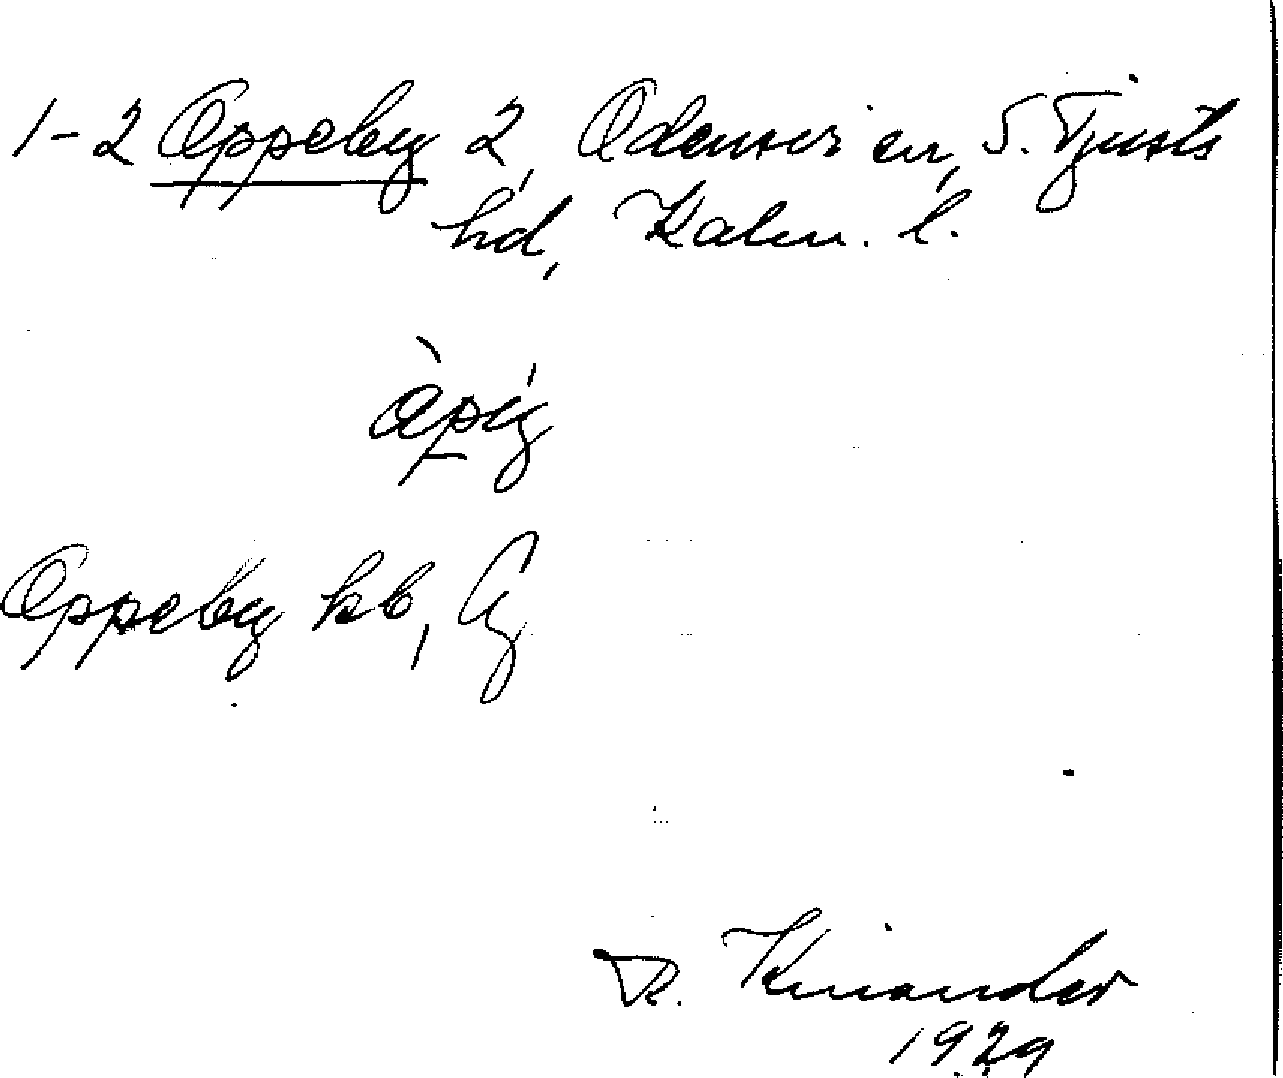 1-2 Oppeby 2, Odensvi sn, S. Tjusts
hd, Kalm. l.
Oppeby kb,
R. Kinander
1929